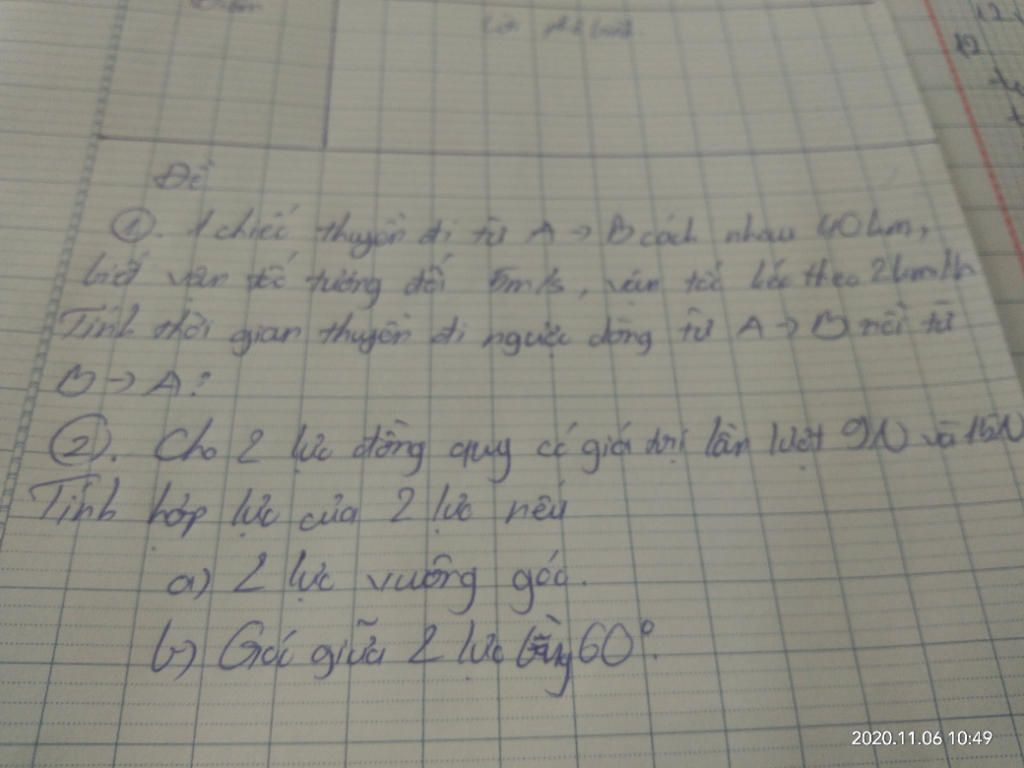 Đề
①. 1 chiếc thuyền đi từ A → B cách nhau 40km,
biết vận tốc tương đối 5m/s, vận tốc kéo theo 2km/h
Tính thời gian thuyền đi ngược dòng từ A → B rồi từ
B → A?
②. Cho 2 lực đồng quy có giá trị lần lượt 9N và 15N
Tính hợp lực của 2 lực nếu
a) 2 lực vuông góc.
b) Góc giữa 2 lực bằng 60°.
2020.11.06 10:49